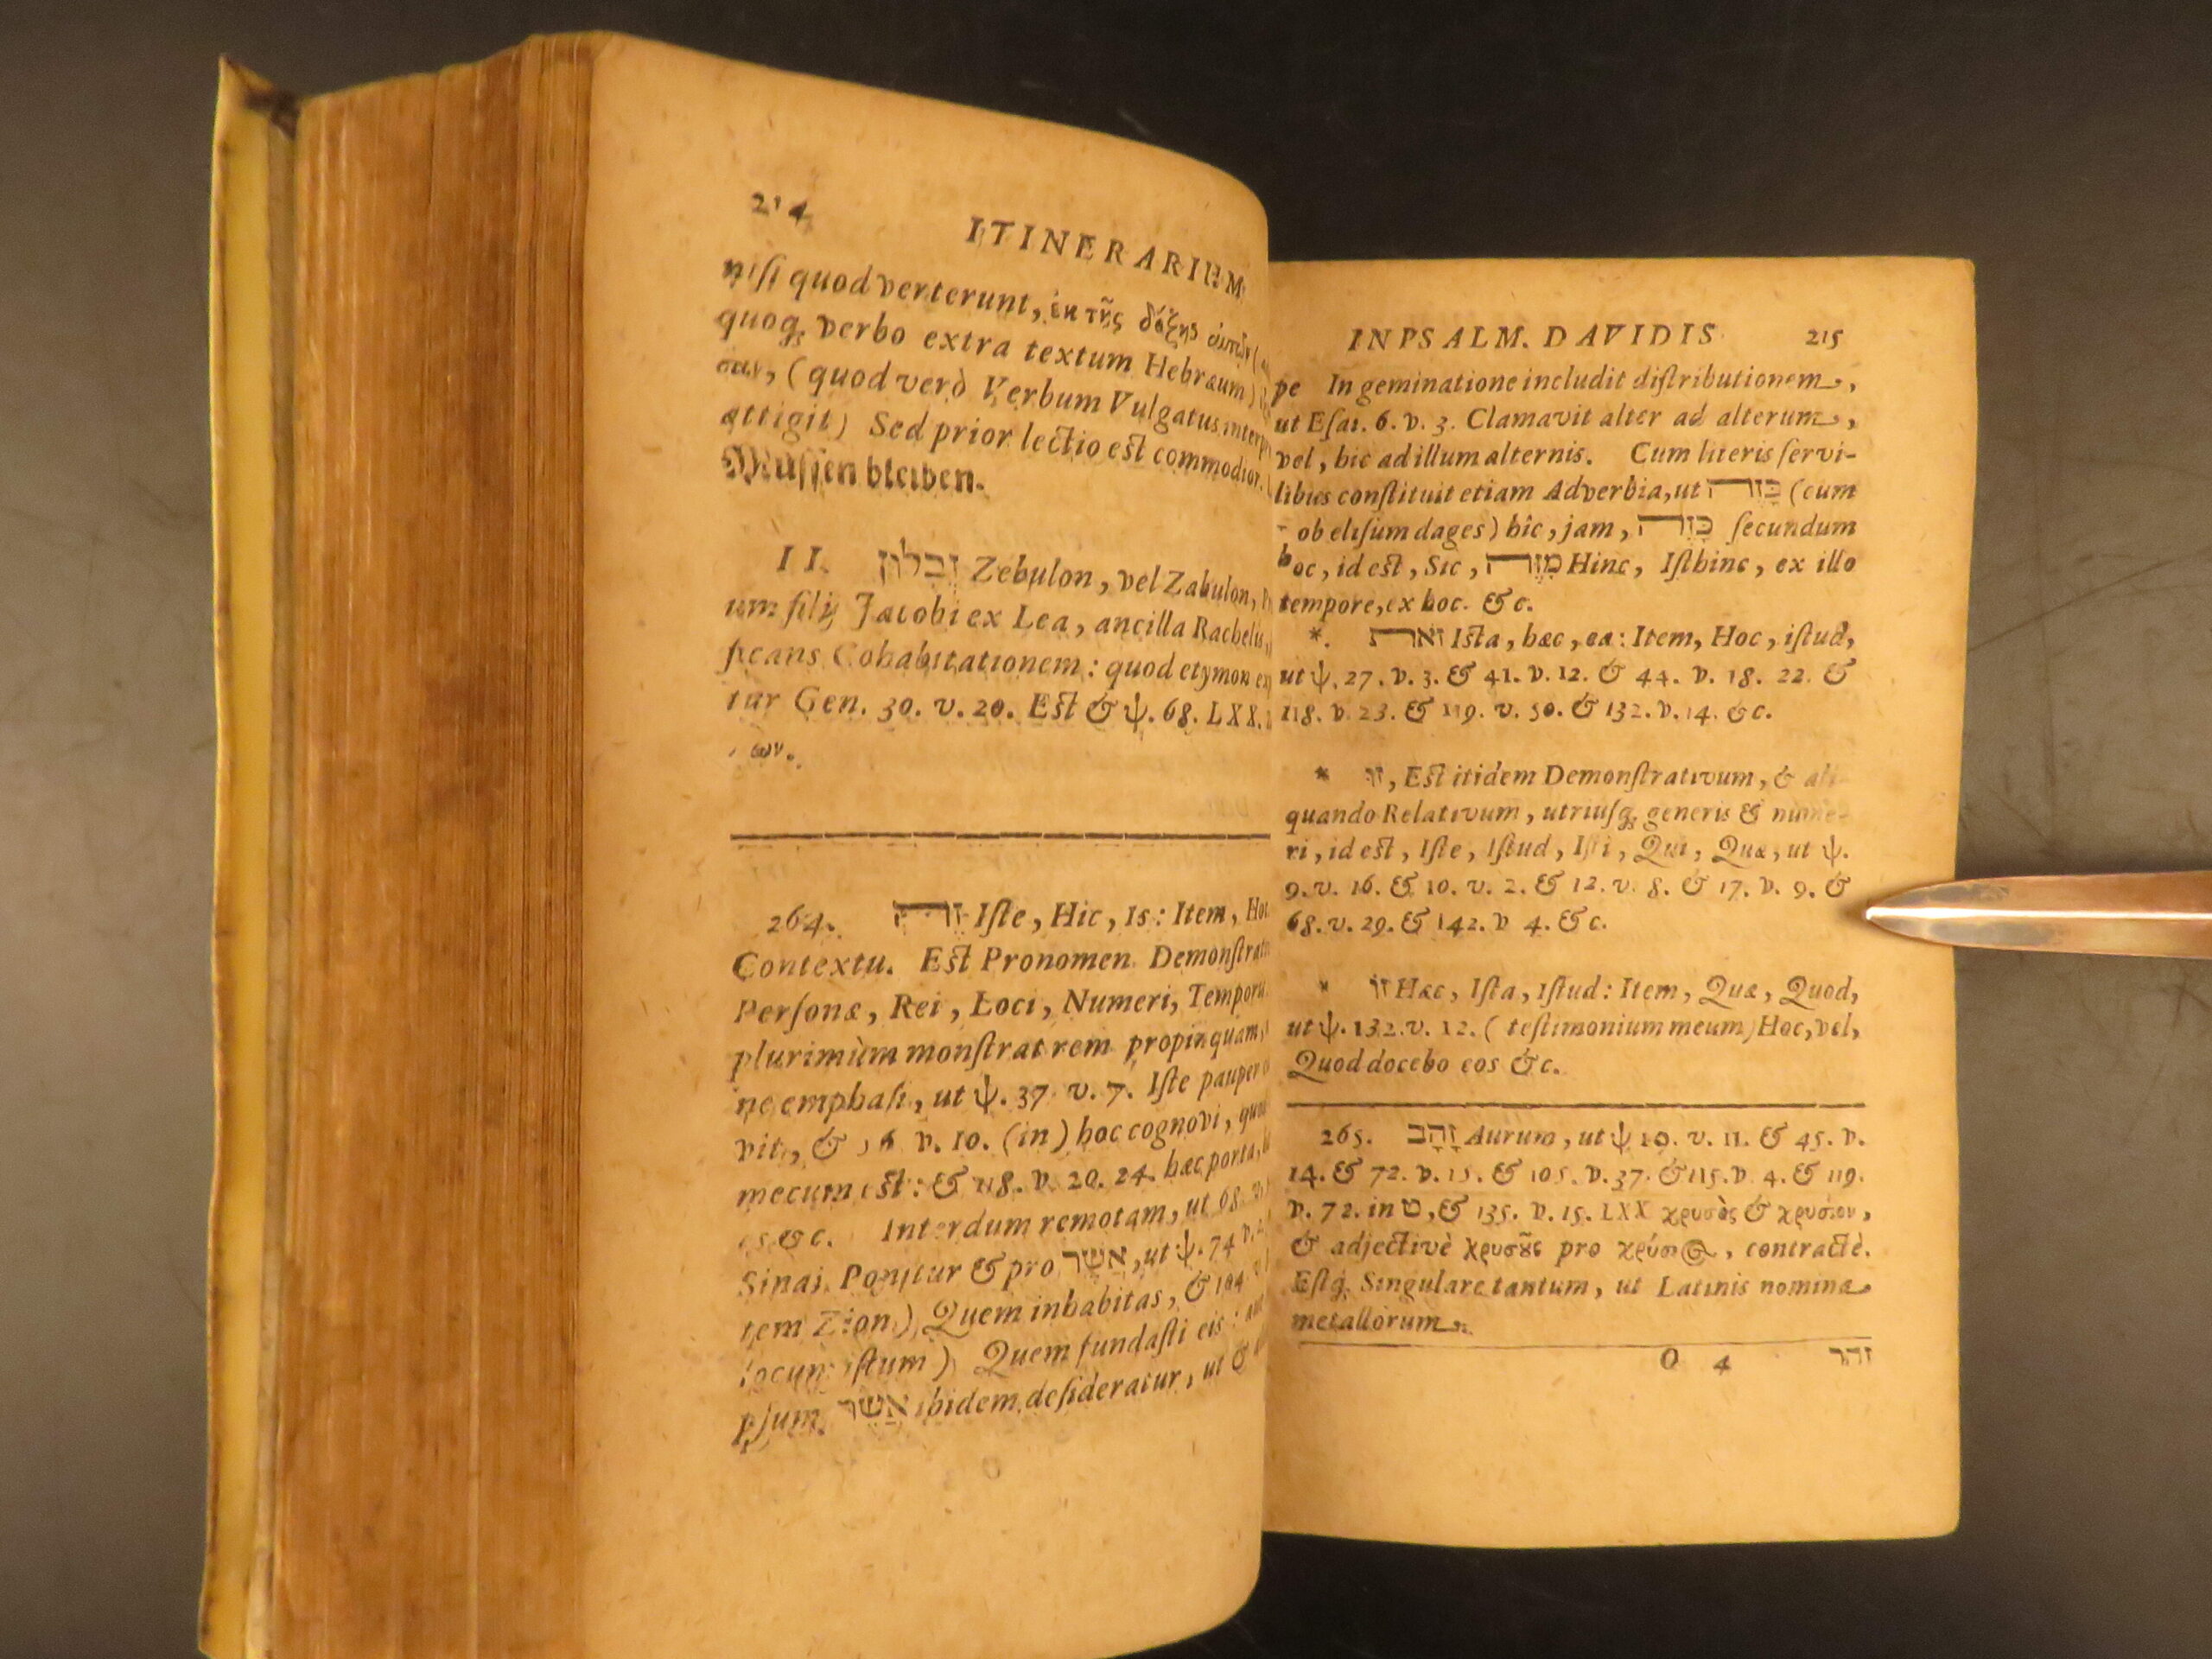 214 ITINERARIUM
nisi quod verterunt, ἐκ τῆς δόξης αὐτῶν (
quoq; verbo extra textum Hebræum)
σαν, (quod verò Verbum Vulgatus interp
attigit) Sed prior lectio est commodior.
Müssen bleiben.
II. זְבֻלוּן Zebulon, vel Zabulon,
um filij Jacobi ex Lea, ancilla Rachelis,
ficans Cohabitationem: quod etymon ex
tur Gen. 30. v. 20. Est & ψ. 68. LXX.
ων.
264. זֶה Iste, Hic, Is: Item, Hoc
Contextu. Est Pronomen Demonstrati
Personæ, Rei, Loci, Numeri, Temporis
plurimùm monstrat rem propinquam,
ne emphasi, ut ψ. 37. v. 7. Iste pauper
vit, & 56 v. 10. (in) hoc cognovi, quod
mecum est: & 118. v. 20. 24. hæc porta,
es &c. Interdum remotam, ut 68.
Sinai. Ponitur & pro אֲשֶׁר, ut ψ. 74 v. 2.
tem Zion) Quem inhabitas, & 104
locum istum) Quem fundasti eis:
psum אֲשֶׁר ibidem desideratur, ut &
IN PSALM. DAVIDIS 215
pe In geminatione includit distributionem,
ut Esai. 6. v. 3. Clamavit alter ad alterum,
vel, hic ad illum alternis. Cum literis servi-
libus constituit etiam Adverbia, ut בָּזֶה (cum
- ob elisum dages) hîc, jam, כָּזֶה secundum
hoc, id est, Sic, מִזֶּה Hinc, Isthinc, ex illo
tempore, ex hoc. &c.
*. זֹאת Ista, hæc, ea: Item, Hoc, istud,
ut ψ. 27. v. 3. & 41. v. 12. & 44. v. 18. 22. &
118. v. 23. & 119. v. 50. & 132. v. 14. &c.
* זוּ, Est itidem Demonstrativum, & ali-
quando Relativum, utriusq; generis & nume-
ri, id est, Iste, Istud, Isti, Qui, Quæ, ut ψ.
9. v. 16. & 10. v. 2. & 12. v. 8. & 17. v. 9. &
68. v. 29. & 142. v 4. &c.
* זוֹ Hæc, Ista, Istud: Item, Quæ, Quod,
ut ψ. 132. v. 12. (testimonium meum) Hoc, vel,
Quod docebo eos &c.
265. זָהָב Aurum, ut ψ 19. v. 11. & 45. v.
14. & 72. v. 15. & 105. v. 37. & 115. v. 4. & 119.
v. 72. in ט, & 135. v. 15. LXX χρυσὸς & χρυσίον,
& adjectivè χρυσοῦς pro χρύσεος, contractè.
Estq; Singulare tantum, ut Latinis nomina
metallorum.
O 4 זהר